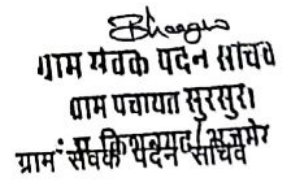 ग्राम सेवक पदेन सचिव
ग्राम पंचायत सुरसुरा
किशनगढ़ / अजमेर
ग्राम सेवक पदेन सचिव